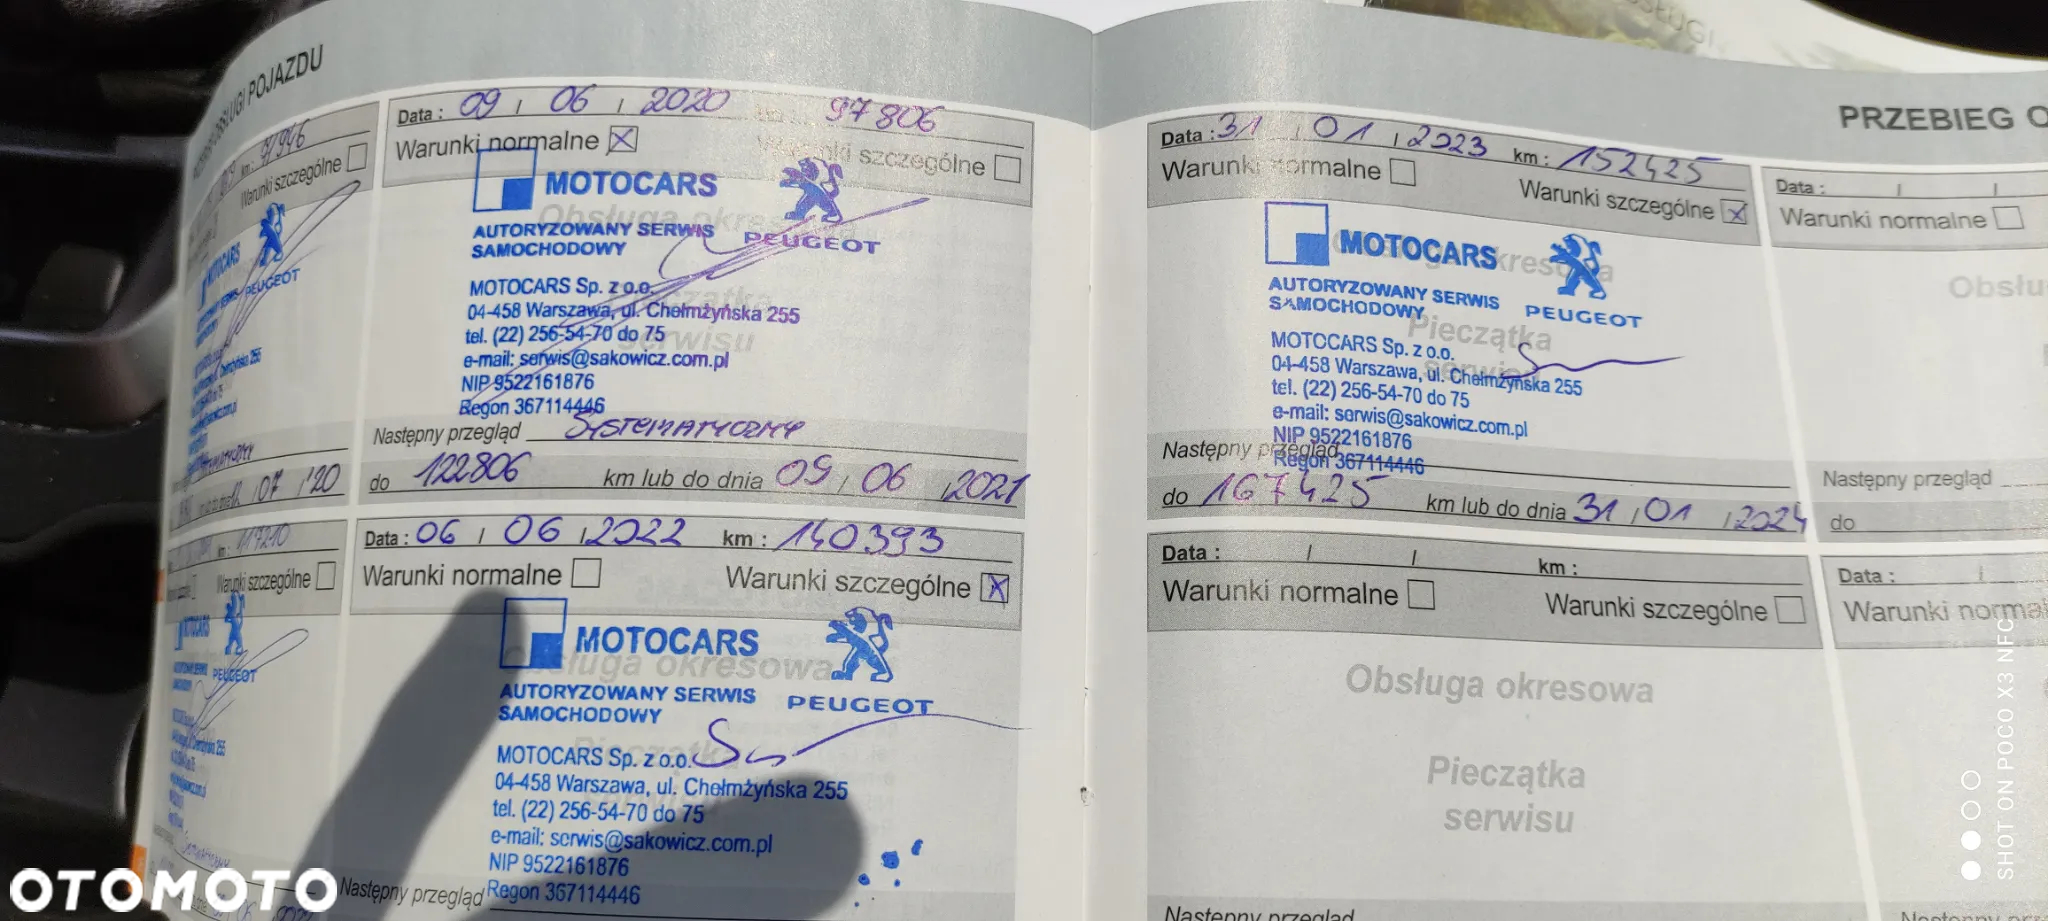 OBSŁUGI POJAZDU
km :
Warunki szczególne
MOTOCARS
PEUGEOT
07 / '20
km : 117210
Warunki szczególne
PEUGEOT
Data : 09 / 06 / 2020 97806
Warunki normalne X
Warunki szczególne
MOTOCARS
Obsługa okresowa
AUTORYZOWANY SERWIS
SAMOCHODOWY
PEUGEOT
MOTOCARS Sp. z o.o.
Pieczątka
04-458 Warszawa, ul. Chełmżyńska 255
tel. (22) 256-54-70 do 75
serwisu
e-mail: serwis@sakowicz.com.pl
NIP 9522161876
Regon 367114446
Następny przegląd SYSTEMATYCZNY
do 122806 km lub do dnia 09 / 06 / 2021
Data : 06 / 06 / 2022 km : 140393
Warunki normalne
Warunki szczególne X
MOTOCARS
Obsługa okresowa
AUTORYZOWANY SERWIS
SAMOCHODOWY
PEUGEOT
MOTOCARS Sp. z o.o.
04-458 Warszawa, ul. Chełmżyńska 255
tel. (22) 256-54-70 do 75
e-mail: serwis@sakowicz.com.pl
NIP 9522161876
Regon 367114446
Następny przegląd
PRZEBIEG O
Data : 31 / 01 / 2023 km : 152425
Warunki normalne
Warunki szczególne X
MOTOCARS
okresowa
AUTORYZOWANY SERWIS
SAMOCHODOWY
PEUGEOT
Pieczątka
MOTOCARS Sp. z o.o.
04-458 Warszawa, ul. Chełmżyńska 255
tel. (22) 256-54-70 do 75
e-mail: serwis@sakowicz.com.pl
NIP 9522161876
Następny przegląd
Regon 367114446
do 167425 km lub do dnia 31 / 01 / 2024
Data : / / km :
Warunki normalne
Warunki szczególne
Obsługa okresowa
Pieczątka
serwisu
Następny przegląd
Data : / /
Warunki normalne
Obsłu
Następny przegląd
do
Data : /
Warunki norma
SHOT ON POCO X3 NFC
OTOMOTO